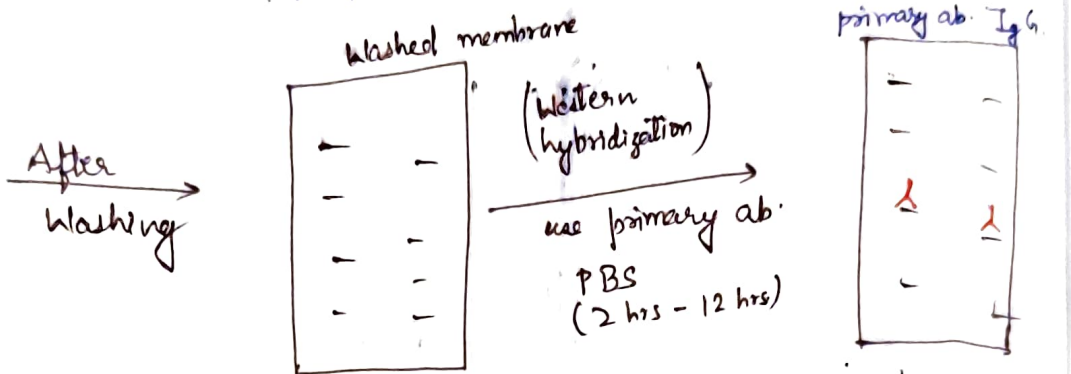 After
Washing
Washed membrane
(Western
hybridization)
use primary ab.
PBS
(2 hrs - 12 hrs)
primary ab. IgG